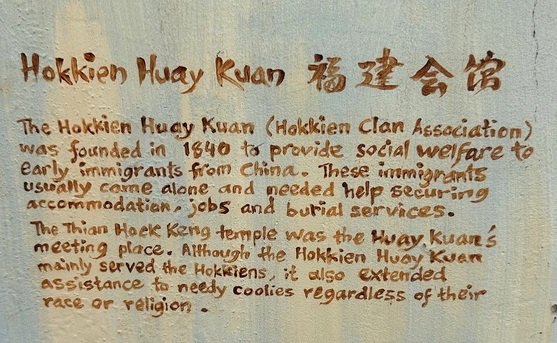 Hokkien Huay Kuan 福建会馆
The Hokkien Huay Kuan (Hokkien Clan Association)
was founded in 1840 to provide social welfare to
early immigrants from China. These immigrants
usually came alone and needed help securing
accommodation, jobs and burial services.
The Thian Hock Keng temple was the Huay Kuan's
meeting place. Although the Hokkien Huay Kuan
mainly served the Hokkiens, it also extended
assistance to needy coolies regardless of their
race or religion.